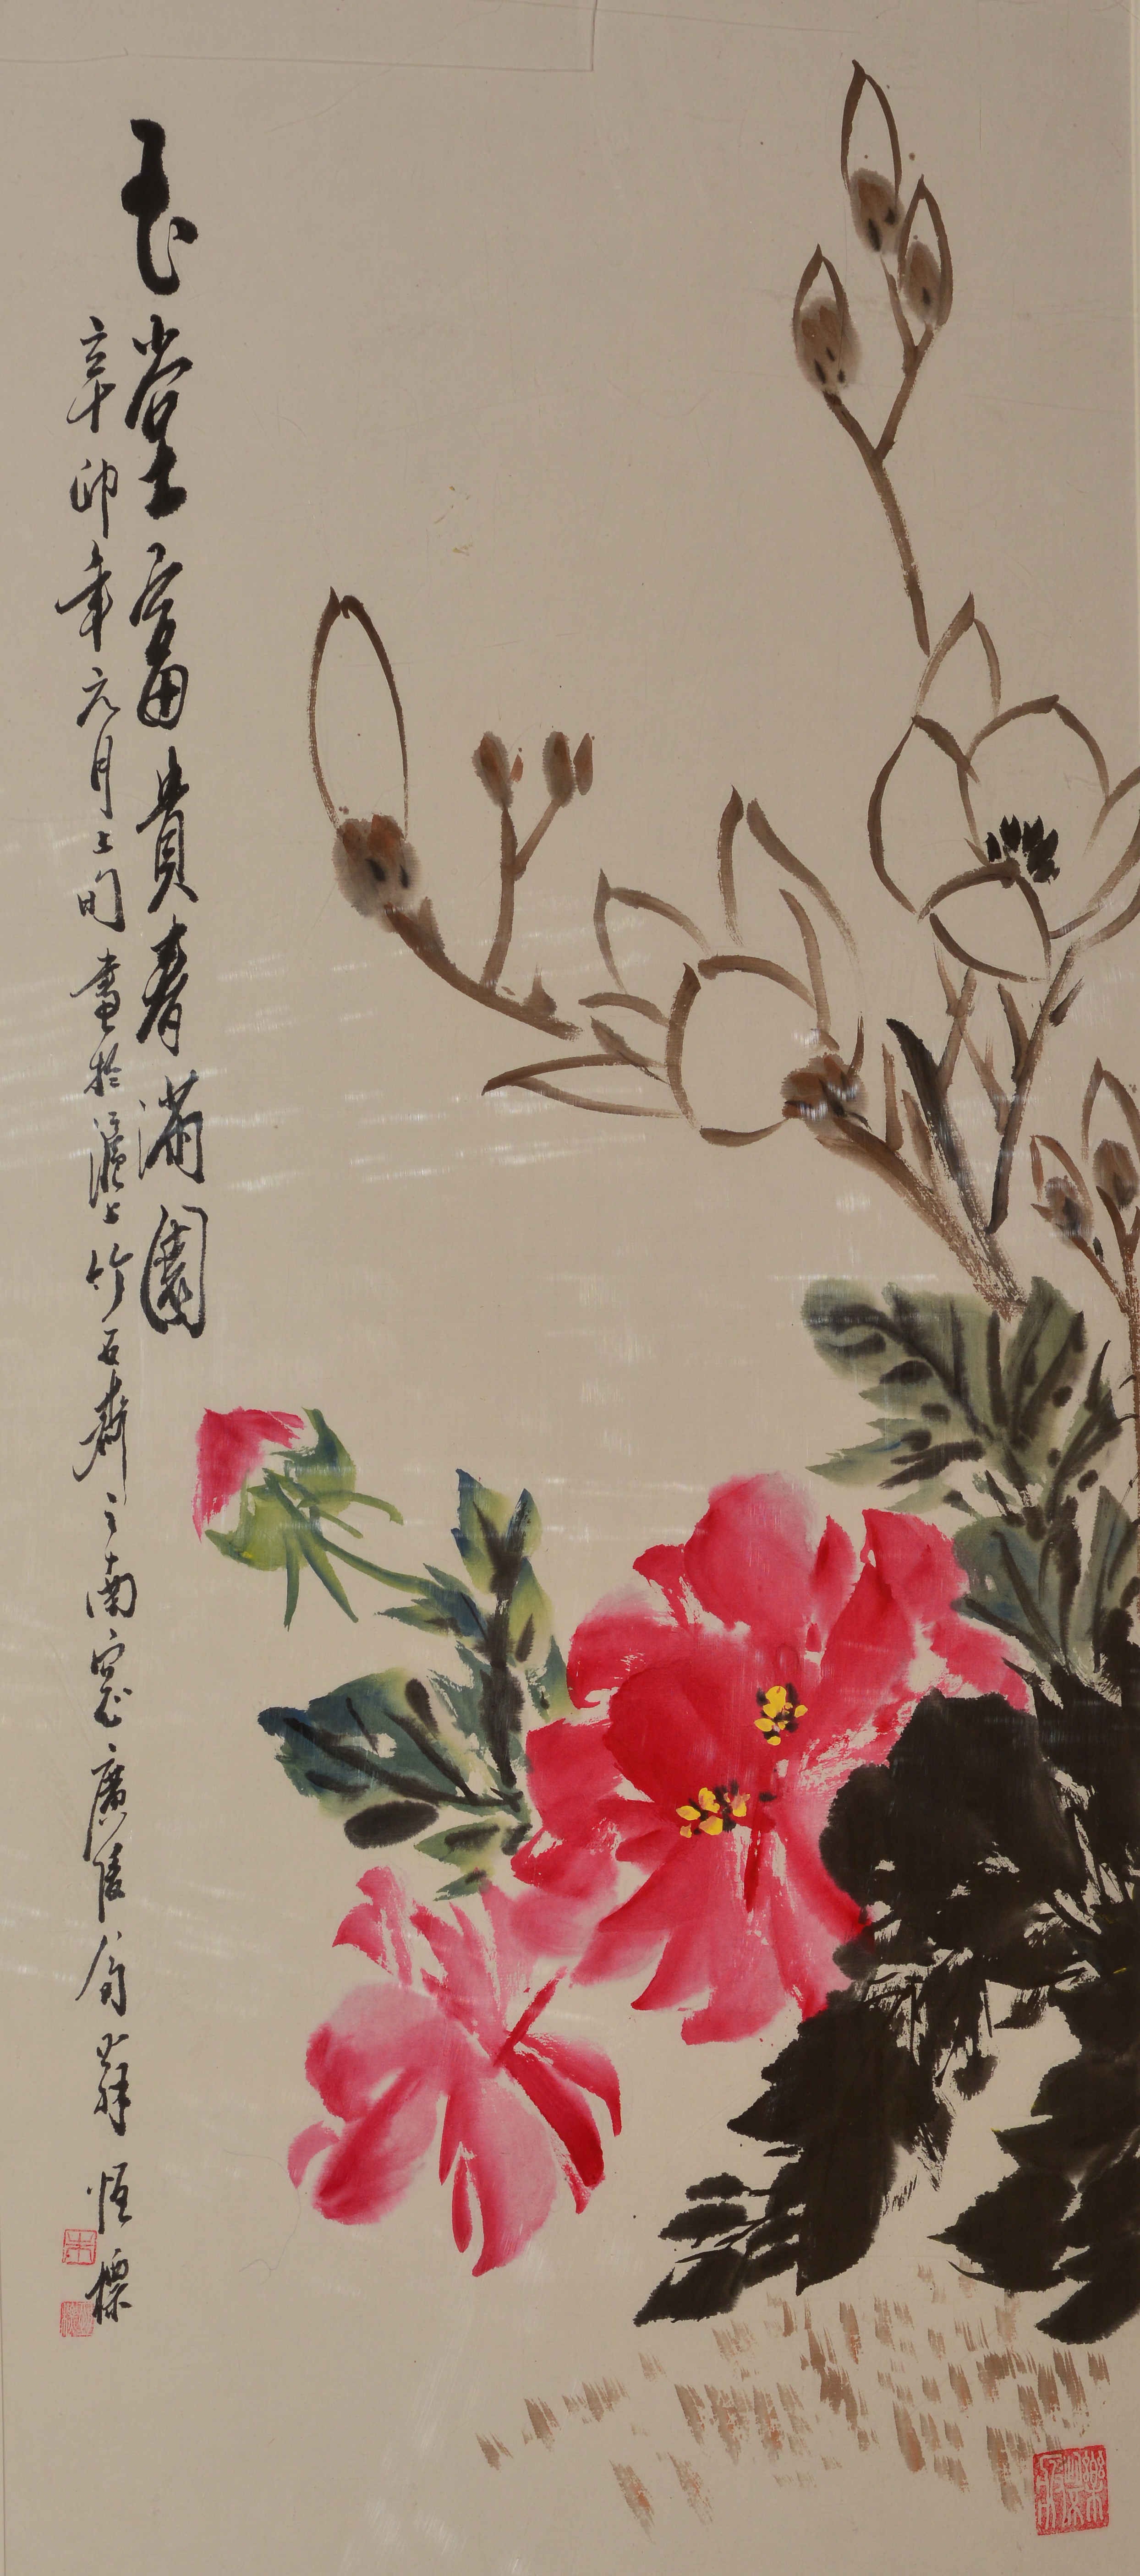 玉堂富貴春滿園
辛卯年元月上旬畫於滬上竹石齋之南窗廣陵翁蘇恒標
朱